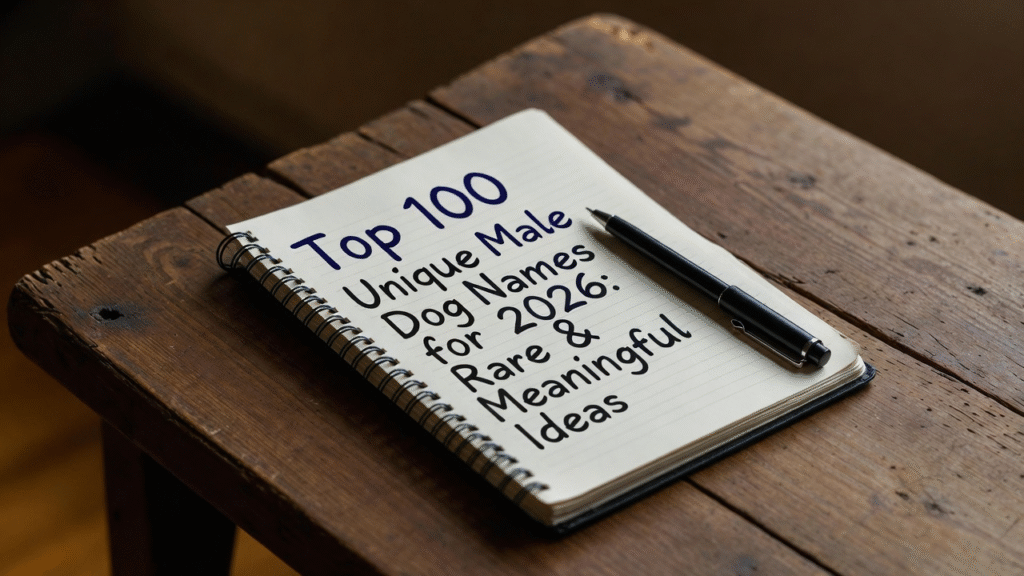 Top 100
Unique Male
Dog Names
for 2026:
Rare &
Meaningful
Ideas